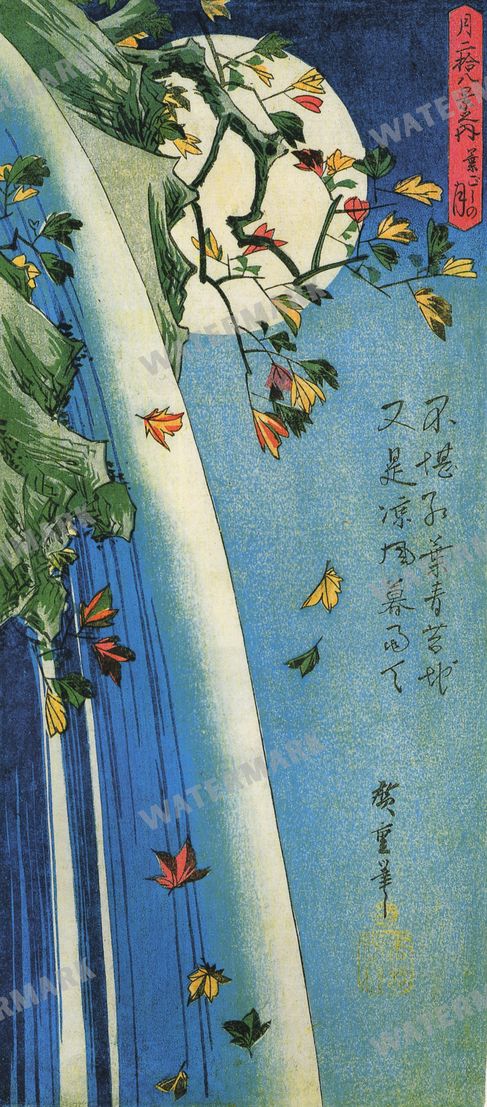 月二拾八景之内 葉ごしの月
不堪紅葉青苔地
又是涼風暮雨天
廣重筆
WATERMARK
WATERMARK
WATERMARK
WATERMARK
WATERMARK
WATERMARK
WATERMARK
WATERMARK
WATERMARK
WATERMARK